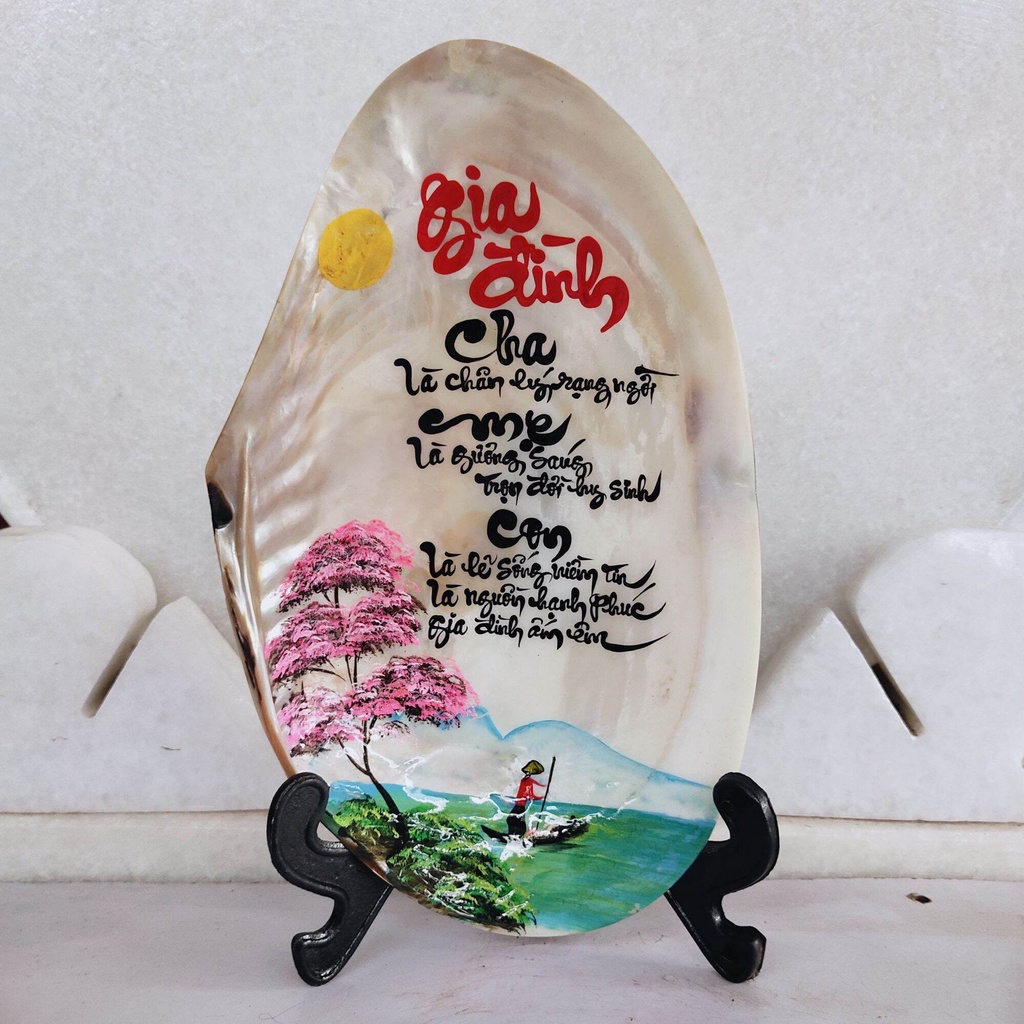 gia
đình
Cha
Là chân lý rạng ngời
mẹ
Là gương sáng
trọn đời hy sinh
Con
Là lẽ sống niềm tin
Là nguồn hạnh phúc
gia đình ấm êm